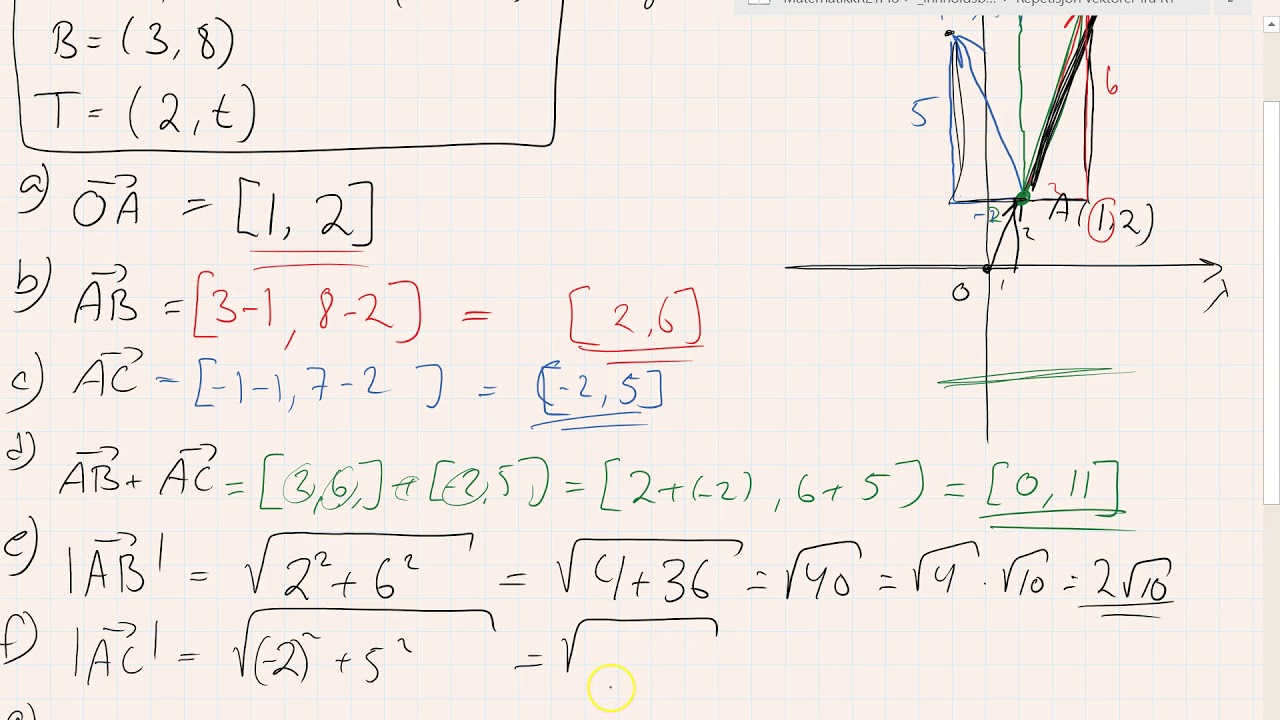 B = (3, 8)
T = (2, t)
a) OA = [1, 2]
b) AB = [3-1, 8-2] = [2, 6]
c) AC = [-1-1, 7-2] = [-2, 5]
d) AB + AC = [2, 6] + [-2, 5] = [2+(-2), 6+5] = [0, 11]
e) |AB| = √2² + 6² = √4+36 = √40 = √4 · √10 = 2√10
f) |AC| = √(-2)² + 5² = √
5
6
-2
A(1,2)
2
0
1